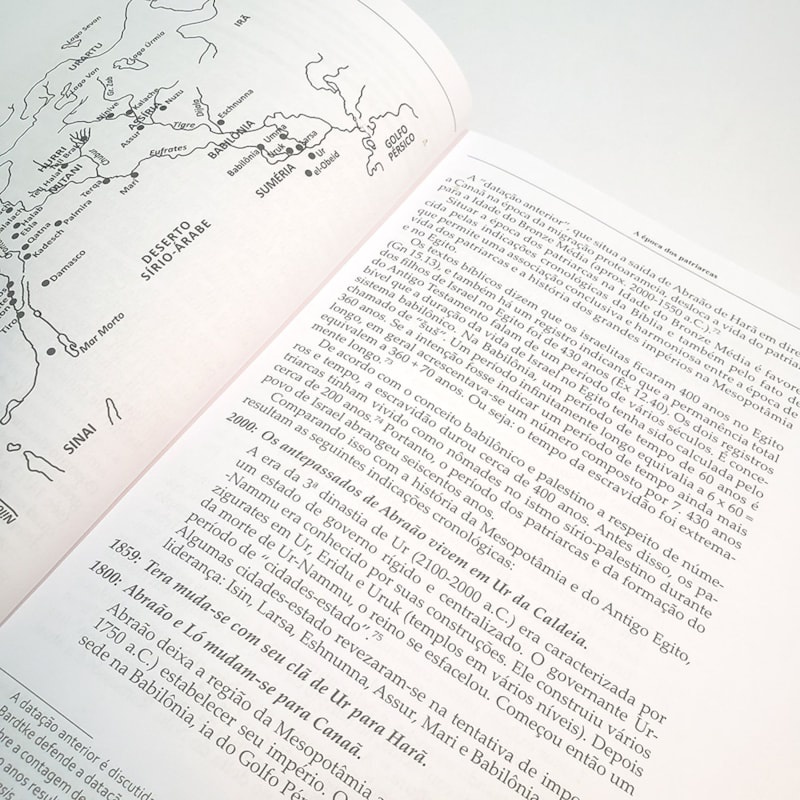 Lago Sevan
IRÃ
URARTU
Lago Úrmia
Lago Van
Gr. Zab
Nínive
Kalach
Nuzu
ASSÍRIA
Assur
Tigre
Diyala
Eschnunna
HURRI
MITANI
Tell Halaf
Brak
Eufrates
BABILÔNIA
Babilônia
Umma
Uruk
Larsa
Ur
el-Obeid
SUMÉRIA
GOLFO
PÉRSICO
Terqa
Mari
Halab
Ebla
Qatna
Palmira
Kadesch
DESERTO
SÍRIO-ÁRABE
Damasco
Tiro
Mar Morto
SINAI
A época dos patriarcas
A “datação anterior”, que situa a saída de Abraão de Harã em dire
a Canaã na época da migração protoarameia, desloca a vida do patri
para a Idade do Bronze Média (aprox. 2000-1550 a.C.).
Situar a época dos patriarcas na Idade do Bronze Média é favore-
cida pelas indicações cronológicas da Bíblia e também pelo fato de
que permite uma associação conclusiva e harmoniosa entre a época de
vida dos patriarcas e a história dos grandes impérios na Mesopotâmia
e no Egito.
Os textos bíblicos dizem que os israelitas ficaram 400 anos no Egito
(Gn 15.13), e também há um registro indicando que a permanência total
dos filhos de Israel no Egito foi de 430 anos (Êx 12.40). Os dois registros
do Antigo Testamento falam de um período de vários séculos. É conce-
bível que a duração da vida de Israel no Egito tenha sido calculada pelo
sistema babilônico. Na Babilônia, um período de tempo de 60 anos é
chamado de “šuš”. Um período infinitamente longo equivalia a 6 x 60 =
360 anos. Se a intenção fosse indicar um período de tempo ainda mais
longo, em geral acrescentava-se um número composto por 7. 430 anos
equivalem a 360 + 70 anos. Ou seja: o tempo da escravidão foi extrema-
mente longo.⁷³
De acordo com o conceito babilônico e palestino a respeito de núme-
ros e tempo, a escravidão durou cerca de 400 anos. Antes disso, os pa-
triarcas tinham vivido como nômades no istmo sírio-palestino durante
cerca de 200 anos.⁷⁴ Portanto, o período dos patriarcas e da formação do
povo de Israel abrangeu seiscentos anos.
Comparando isso com a história da Mesopotâmia e do Antigo Egito,
resultam as seguintes indicações cronológicas:
2000: Os antepassados de Abraão vivem em Ur da Caldeia.
A era da 3ª dinastia de Ur (2100-2000 a.C.) era caracterizada por
um estado de governo rígido e centralizado. O governante Ur-
-Nammu era conhecido por suas construções. Ele construiu vários
zigurates em Ur, Eridu e Uruk (templos em vários níveis). Depois
da morte de Ur-Nammu, o reino se esfacelou. Começou então um
período de “cidades-estado”.⁷⁵
Algumas cidades-estado revezaram-se na tentativa de impo
liderança: Isin, Larsa, Eshnunna, Assur, Mari e Babilônia
1859: Tera muda-se com seu clã de Ur para Harã.
1800: Abraão e Ló mudam-se para Canaã.
Abraão deixa a região da Mesopotâmia a
1750 a.C.) estabelecer seu império. O
sede na Babilônia, ia do Golfo Pér
A datação anterior é discutida
Bardtke defende a datação
re a contagem de
anos resul